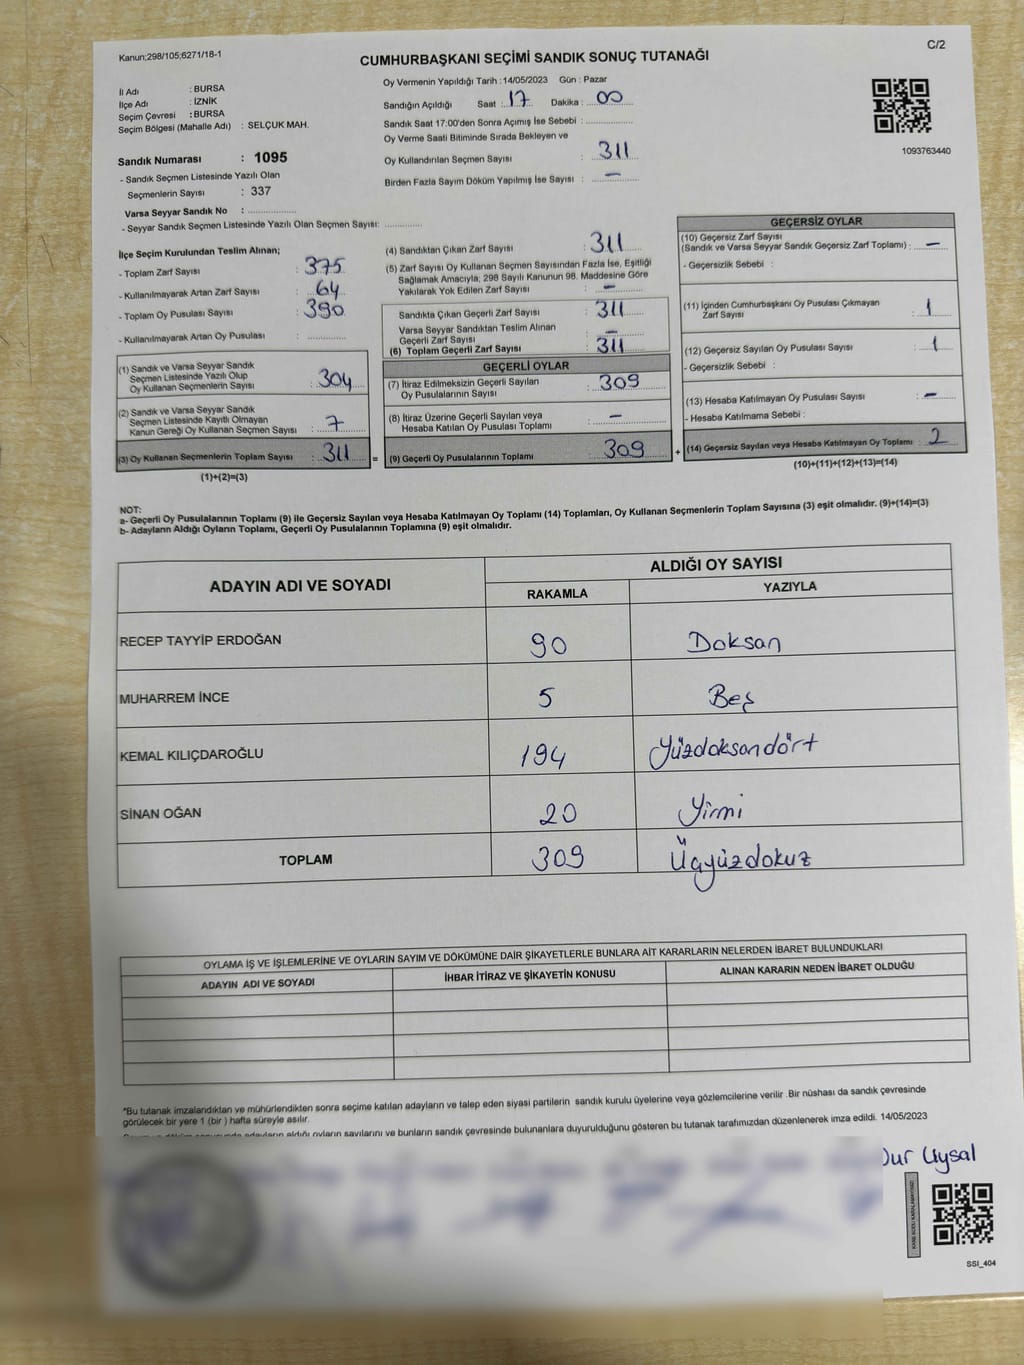 Kanun;298/105;6271/18-1
C/2
CUMHURBAŞKANI SEÇİMİ SANDIK SONUÇ TUTANAĞI
İl Adı : BURSA
İlçe Adı : İZNİK
Seçim Çevresi : BURSA
Seçim Bölgesi (Mahalle Adı) : SELÇUK MAH.
Sandık Numarası : 1095
- Sandık Seçmen Listesinde Yazılı Olan
Seçmenlerin Sayısı : 337
Varsa Seyyar Sandık No : ..................
- Seyyar Sandık Seçmen Listesinde Yazılı Olan Seçmen Sayısı: ..............
Oy Vermenin Yapıldığı Tarih : 14/05/2023 Gün : Pazar
Sandığın Açıldığı Saat : 17 Dakika : 00
Sandık Saat 17:00'den Sonra Açımış İse Sebebi : ..................
Oy Verme Saati Bitiminde Sırada Bekleyen ve
Oy Kullandırılan Seçmen Sayısı : 311
Birden Fazla Sayım Döküm Yapılmış İse Sayısı : —
1093763440
İlçe Seçim Kurulundan Teslim Alınan;
- Toplam Zarf Sayısı : 375
- Kullanılmayarak Artan Zarf Sayısı : 64
- Toplam Oy Pusulası Sayısı : 390
- Kullanılmayarak Artan Oy Pusulası : ..............
(1) Sandık ve Varsa Seyyar Sandık
Seçmen Listesinde Yazılı Olup
Oy Kullanan Seçmenlerin Sayısı : 304
(2) Sandık ve Varsa Seyyar Sandık
Seçmen Listesinde Kayıtlı Olmayan
Kanun Gereği Oy Kullanan Seçmen Sayısı : 7
(3) Oy Kullanan Seçmenlerin Toplam Sayısı : 311 =
(1)+(2)=(3)
(4) Sandıktan Çıkan Zarf Sayısı : 311
(5) Zarf Sayısı Oy Kullanan Seçmen Sayısından Fazla İse, Eşitliği
Sağlamak Amacıyla; 298 Sayılı Kanunun 98. Maddesine Göre
Yakılarak Yok Edilen Zarf Sayısı : —
Sandıkta Çıkan Geçerli Zarf Sayısı : 311
Varsa Seyyar Sandıktan Teslim Alınan
Geçerli Zarf Sayısı : —
(6) Toplam Geçerli Zarf Sayısı : 311
GEÇERLİ OYLAR
(7) İtiraz Edilmeksizin Geçerli Sayılan
Oy Pusulalarının Sayısı : 309
(8) İtiraz Üzerine Geçerli Sayılan veya
Hesaba Katılan Oy Pusulası Toplamı : —
(9) Geçerli Oy Pusulalarının Toplamı 309 +
GEÇERSİZ OYLAR
(10) Geçersiz Zarf Sayısı
(Sandık ve Varsa Seyyar Sandık Geçersiz Zarf Toplamı) : —
- Geçersizlik Sebebi :
(11) İçinden Cumhurbaşkanı Oy Pusulası Çıkmayan
Zarf Sayısı : 1
(12) Geçersiz Sayılan Oy Pusulası Sayısı : 1
- Geçersizlik Sebebi :
(13) Hesaba Katılmayan Oy Pusulası Sayısı : —
- Hesaba Katılmama Sebebi :
(14) Geçersiz Sayılan veya Hesaba Katılmayan Oy Toplamı : 2
(10)+(11)+(12)+(13)=(14)
NOT:
a- Geçerli Oy Pusulalarının Toplamı (9) ile Geçersiz Sayılan veya Hesaba Katılmayan Oy Toplamı (14) Toplamları, Oy Kullanan Seçmenlerin Toplam Sayısına (3) eşit olmalıdır. (9)+(14)=(3)
b- Adayların Aldığı Oyların Toplamı, Geçerli Oy Pusulalarının Toplamına (9) eşit olmalıdır.
ADAYIN ADI VE SOYADI ALDIĞI OY SAYISI
RAKAMLA YAZIYLA
RECEP TAYYİP ERDOĞAN 90 Doksan
MUHARREM İNCE 5 Beş
KEMAL KILIÇDAROĞLU 194 Yüzdoksandört
SİNAN OĞAN 20 Yirmi
TOPLAM 309 Üçyüzdokuz
OYLAMA İŞ VE İŞLEMLERİNE VE OYLARIN SAYIM VE DÖKÜMÜNE DAİR ŞİKAYETLERLE BUNLARA AİT KARARLARIN NELERDEN İBARET BULUNDUKLARI
ADAYIN ADI VE SOYADI İHBAR İTİRAZ VE ŞİKAYETİN KONUSU ALINAN KARARIN NEDEN İBARET OLDUĞU
*Bu tutanak imzalandıktan ve mühürlendikten sonra seçime katılan adayların ve talep eden siyasi partilerin sandık kurulu üyelerine veya gözlemcilerine verilir .Bir nüshası da sandık çevresinde
görülecek bir yere 1 (bir ) hafta süreyle asılır.
adayların aldığı oyların sayılarını ve bunların sandık çevresinde bulunanlara duyurulduğunu gösteren bu tutanak tarafımızdan düzenlenerek imza edildi. 14/05/2023
Uysal
SSI_404